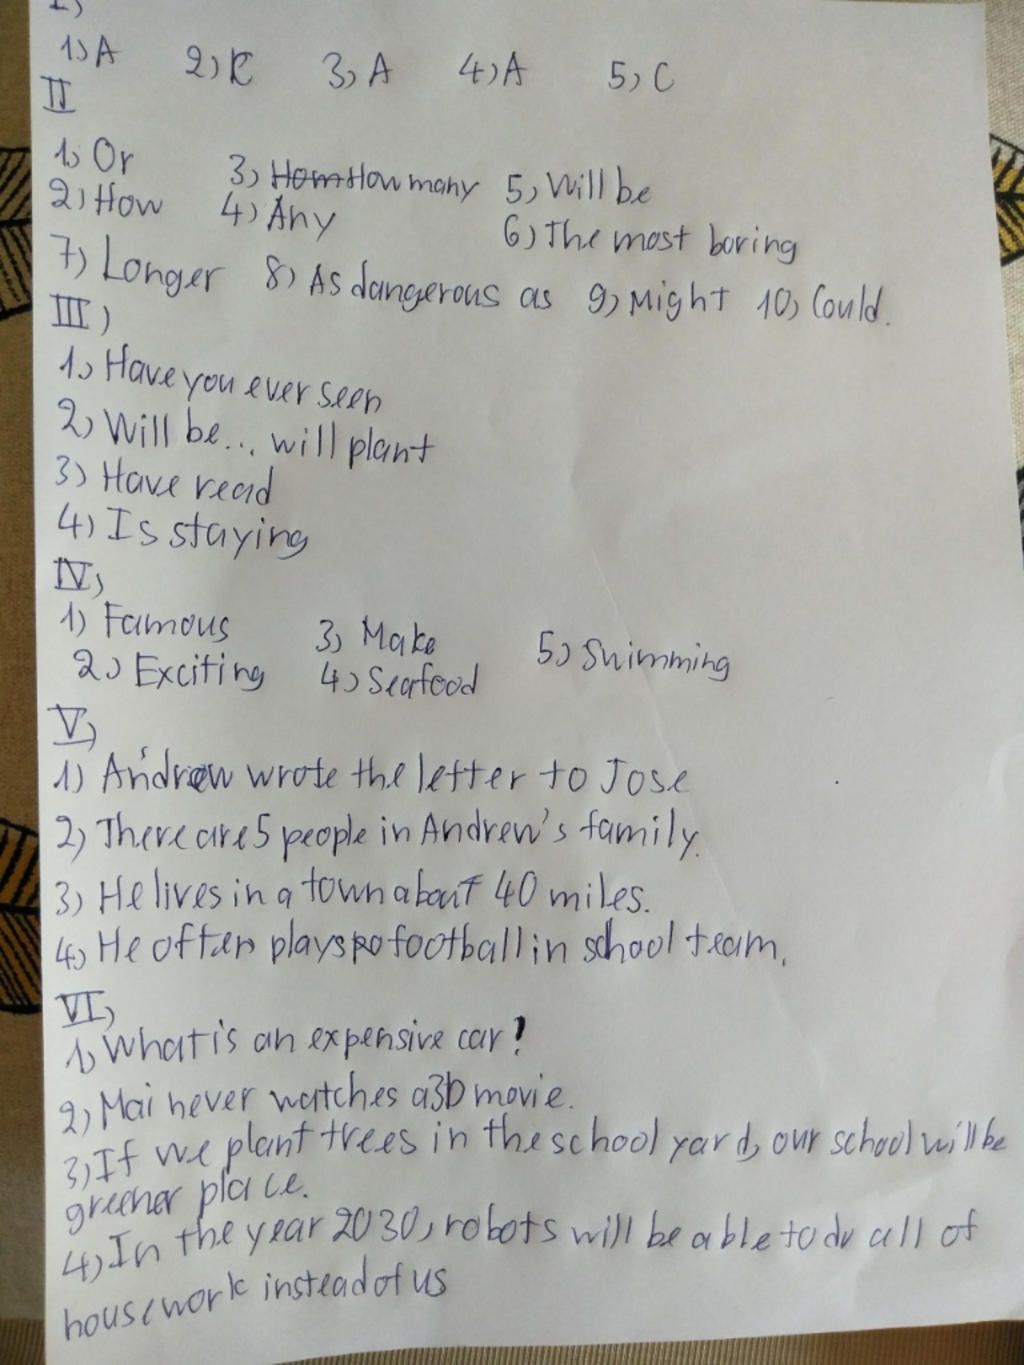 I)
1) A 2) C 3) A 4) A 5) C
II
1) Or 3) How many 5) Will be
2) How 4) Any 6) The most boring
7) Longer 8) As dangerous as 9) Might 10) Could.
III)
1) Have you ever seen
2) Will be... will plant
3) Have read
4) Is staying
IV)
1) Famous 3) Make 5) Swimming
2) Exciting 4) Seafood
V)
1) Andrew wrote the letter to Jose
2) There are 5 people in Andrew's family.
3) He lives in a town about 40 miles.
4) He often plays football in school team.
VI)
1) What is an expensive car!
2) Mai never watches a 3D movie.
3) If we plant trees in the school yard, our school will be
greener place.
4) In the year 2030, robots will be able to do all of
housework instead of us